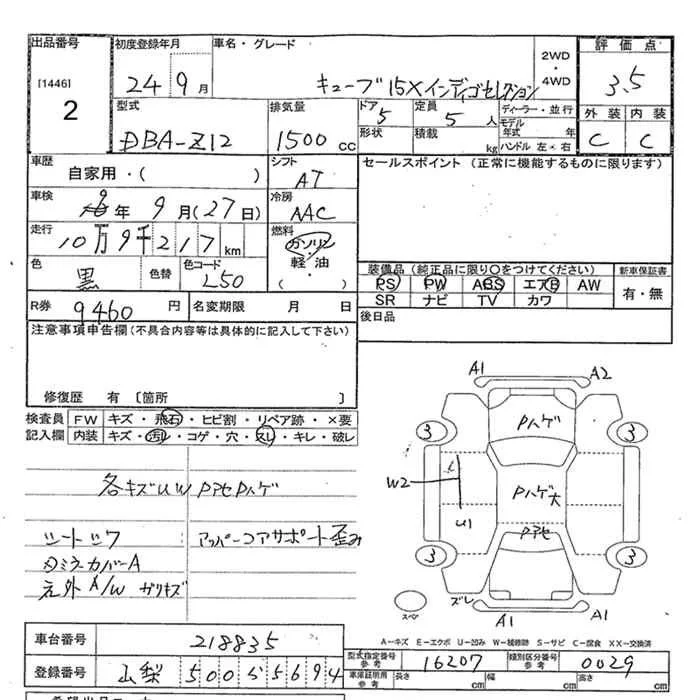 出品番号
[1446]
2
初度登録年月
24年9月
車名・グレード
キューブ 15X インディゴセレクション
2WD
・
4WD
評価点
3.5
外装 内装
C C
型式
DBA-Z12
排気量
1500 CC
ドア
5
定員
5人
形状
積載
kg
ディーラー・並行
モデル
年式 年
ハンドル 左・右
車歴
自家用・( )
シフト
AT
セールスポイント (正常に機能するものに限ります)
車検
年 9月(27日)
冷房
AAC
走行
10万9千217km
燃料
ガソリン
軽・油
( )
色
黒
色替
色コード
L50
装備品(純正品に限り○をつけてください)
PS PW ABS エアB AW
SR ナビ TV カワ
新車保証書
有・無
R券
9460円
名変期限 月 日
後日品
注意事項申告欄(不具合内容等は具体的に記入して下さい)
修復歴 有 〔箇所 〕
検査員
記入欄
FW キズ・飛石・ヒビ割・リペア跡・×要
内装 キズ・汚レ・コゲ・穴・スレ・キレ・破レ
各キズUW PアセPハゲ
シートスワ
アッパーコアサポート歪み
ロミネーカバーA
元外A/W ガリキズ
A1
A2
Pハゲ
3
3
W2
U1
Pハゲ大
Pアセ
3
3
スペア
ズレ
A1
A1
A-キズ E-エクボ U-凹み W-補修跡 S-サビ C-腐食 XX-交換済
車台番号
218835
登録番号
山梨 500 ら 5694
型式指定番号
参考
16207
類別区分番号
参考
0029
車庫証明用
参考
長さ cm
幅 cm
高さ cm